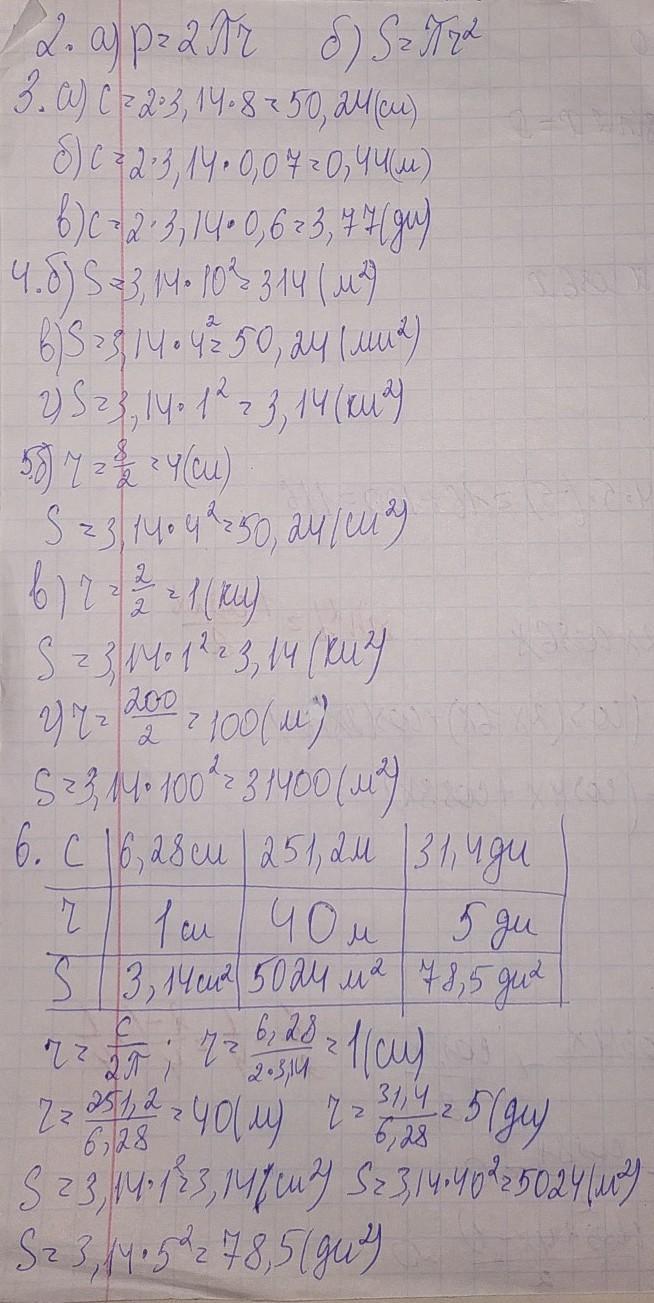 2. а) p=2πr б) S=πr²
3. а) C=2·3,14·8=50,24(см)
б) C=2·3,14·0,07=0,44(м)
в) C=2·3,14·0,6=3,77(дм)
4. б) S=3,14·10²=314(м²)
в) S=3,14·4²=50,24(мм²)
г) S=3,14·1²=3,14(км²)
5. б) r=8/2=4(см)
S=3,14·4²=50,24(см²)
в) r=2/2=1(км)
S=3,14·1²=3,14(км²)
г) r=200/2=100(м)
S=3,14·100²=31400(м²)
6. C 6,28см 251,2м 31,4дм
r 1см 40м 5дм
S 3,14см² 5024м² 78,5дм²
r=C/2π; r=6,28/2·3,14=1(см)
r=251,2/6,28=40(м) r=31,4/6,28=5(дм)
S=3,14·1²=3,14(см²) S=3,14·40²=5024(м²)
S=3,14·5²=78,5(дм²)